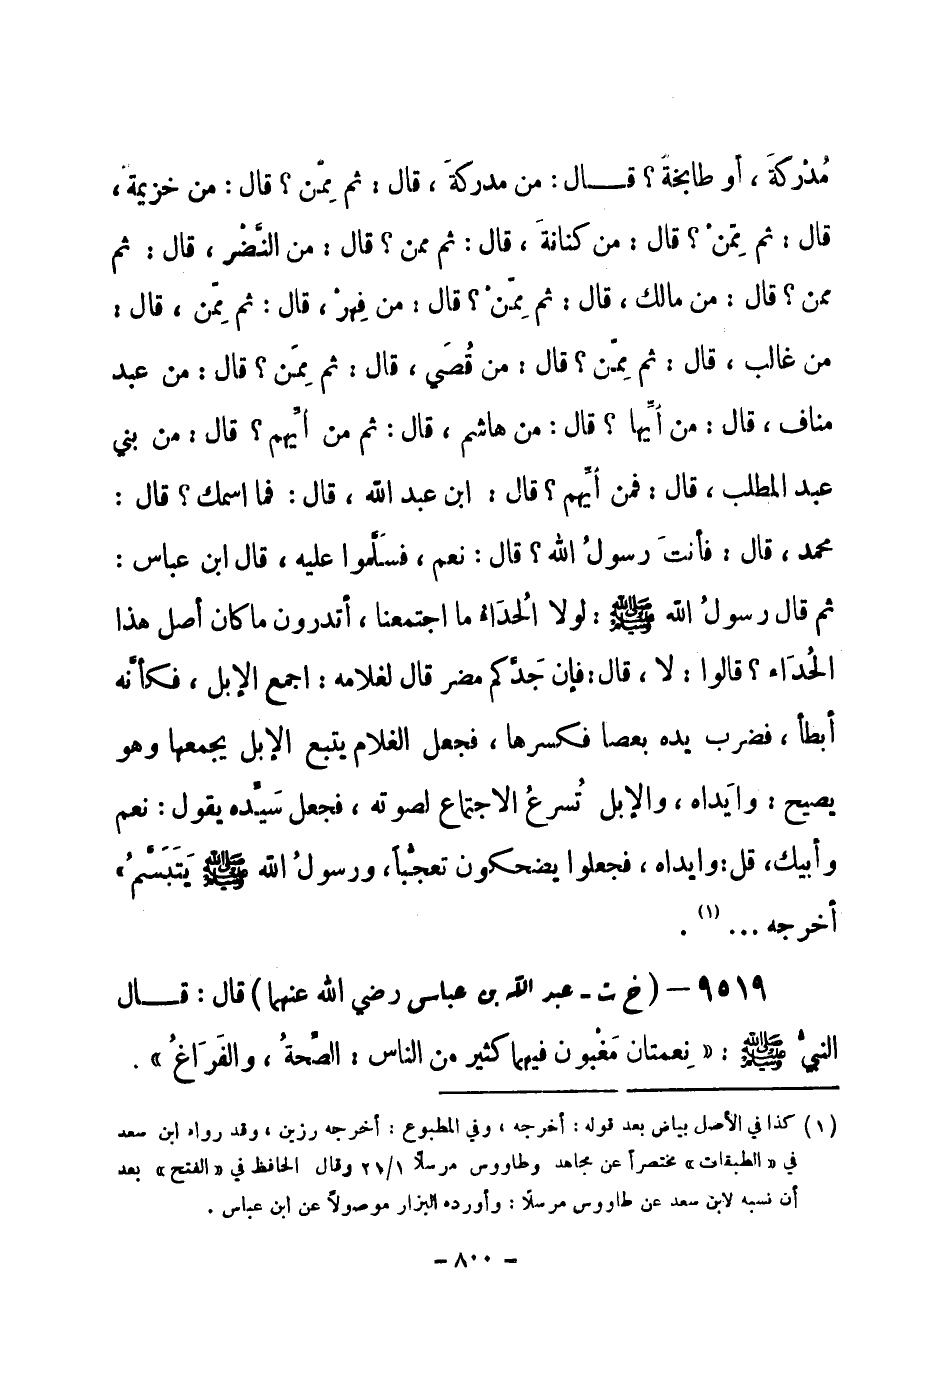 مُدْركةَ ، أو طابخةَ ؟ قـــال : من مدركةَ ، قال : ثم مِمّن ؟ قال : من خزيمةَ ،
قال : ثم مِمّنْ ؟ قال : من كنانةَ ، قال : ثم ممن ؟ قال : من النَّضْر ، قال : ثم
ممن ؟ قال : من مالك ، قال : ثم مِمّنْ ؟ قال : من فِهرْ ، قال : ثم مِمّن ، قال :
من غالب ، قال : ثم مِمّن ؟ قال : من قُصَي ، قال : ثم مِمَن ؟ قال : من عبد
مناف ، قال : من أيِّها ؟ قال : من هاشم ، قال : ثم من أيُّهم ؟ قال : من بني
عبد المطلب ، قال : فمن أيِّهم ؟ قال : ابن عبد الله ، قال : فما اسمك ؟ قال :
محمد ، قال : فأنتَ رسولُ الله ؟ قال : نعم ، فسَلَّموا عليه ، قال ابن عباس :
ثم قال رسولُ الله ﷺ : لولا الُحدَاءُ ما اجتمعنا ، أتدرون ما كان أصل هذا
الحُدَاء ؟ قالوا : لا ، قال : فإن جَدَّكم مضر قال لغلامه : اجمع الإبل ، فكأنَّه
أبطأ ، فضرب يده بعصا فكسرها ، فجعل الغلام يتبع الإبل يجمعها وهو
يصيح : وايَداه ، والإبل تُسرعُ الاجتماع لصوته ، فجعل سَيِّده يقول : نعم
وأبيك، قل : وايداه ، فجعلوا يضحكون تعجُّباً ، ورسولُ الله ﷺ يَتَبَسَّمُ ،
أخرجه ... (١) .
٩٥١٩ – ( خ ت - عبد الله بن عباس رضي الله عنهما ) قال : قـــال
النبيُّ ﷺ : « نِعمتان مَغْبون فيهما كثير من الناس : الصِّحةُ ، والفَرَاغُ » .
(١) كذا في الأصل بياض بعد قوله : أخرجه ، وفي المطبوع : أخرجه رزين ، وقد رواه ابن سعد
في « الطبقات » مختصراً عن مجاهد وطاووس مرسلاً ٢١/١ وقال الحافظ في « الفتح » بعد
أن نسبه لابن سعد عن طاووس مرسلاً : وأورده البزار موصولاً عن ابن عباس .
– ٨٠٠ –